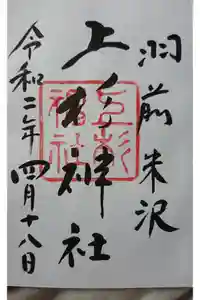 羽前米沢
上杉神社
令和二年四月十八日